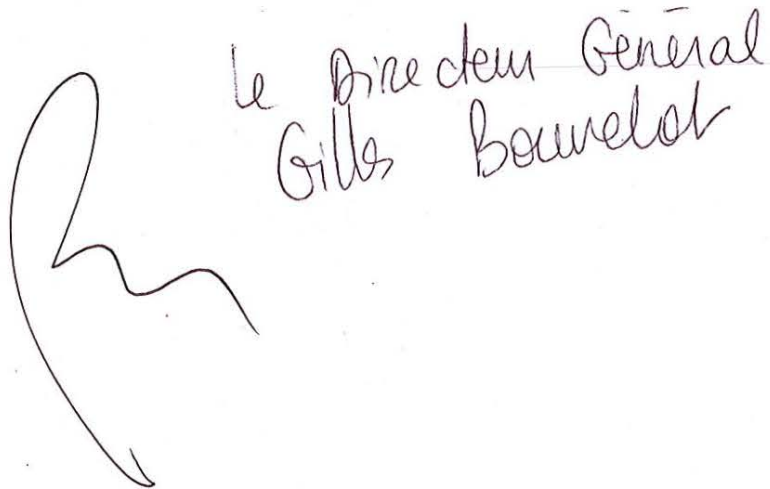 Le Directeur Général
Gilles Bouvelot